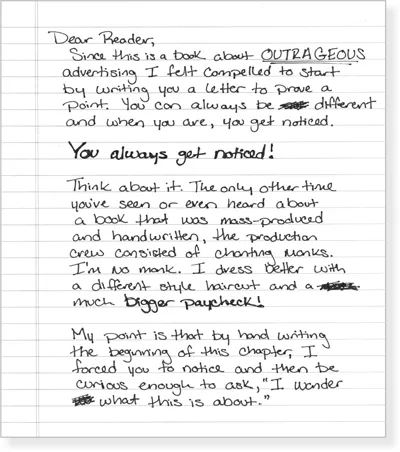 Dear Reader,
Since this is a book about OUTRAGEOUS
advertising I felt compelled to start
by writing you a letter to prove a
point. You can always be different
and when you are, you get noticed.
You always get noticed!
Think about it. The only other time
you've seen or even heard about
a book that was mass-produced
and handwritten, the production
crew consisted of chanting monks.
I'm no monk. I dress better with
a different style haircut and a
much bigger paycheck!
My point is that by hand writing
the beginning of this chapter, I
forced you to notice and then be
curious enough to ask, "I wonder
what this is about."